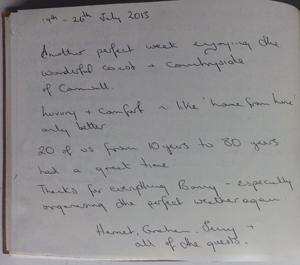 19th - 26th July 2013
Another perfect week enjoying the
wonderful coast + countryside
of Cornwall.
Luxury + comfort ~ like 'home from home'
only better
20 of us from 10 years to 80 years
had a great time
Thanks for everything Barry - especially
organising the perfect weather again
Harriet, Graham, Jenny +
all of the guests.